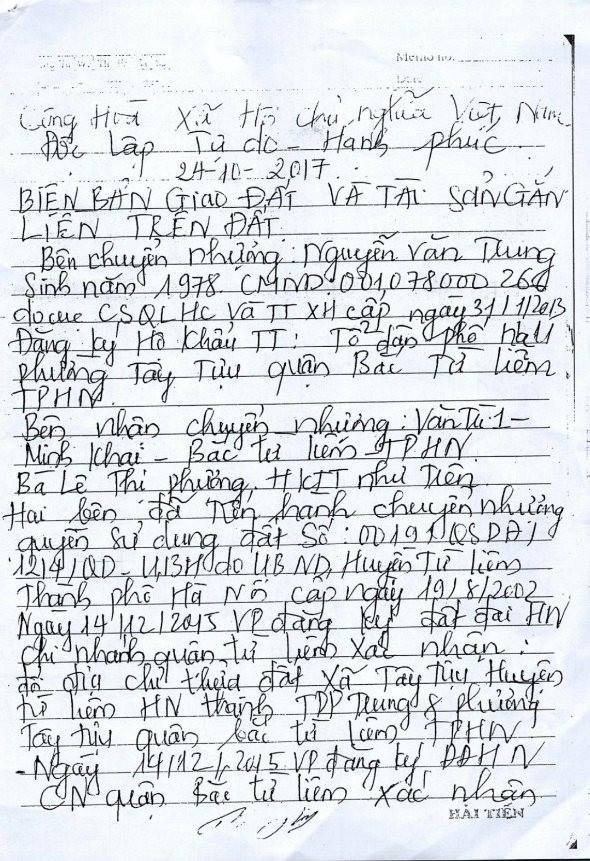 Memo no.
Date
Cộng Hoà Xã Hội chủ nghĩa Việt Nam
Độc lập Tự do - Hạnh phúc
24-10-2017
BIÊN BẢN Giao ĐẤT VÀ TÀI SẢN GẮN
LIỀN TRÊN ĐẤT
Bên chuyển nhượng: Nguyễn Văn Trung
Sinh năm 1978 CMND: 001,078000 266
do cục CSQLHC và TT XH cấp ngày 31/1/2013
Đăng ký Hộ Khẩu TT: Tổ dân phố
phường Tây Tựu quận Bắc Từ liêm
TPHN
Bên nhận chuyển nhượng: Văn Trì 1-
Minh Khai - Bắc từ liêm - TPHN
Bà Lê Thị phượng, HKTT như trên
Hai bên đã tiến hành chuyển nhượng
quyền sử dụng đất Số: 00191 QSDĐ/
1214/QĐ-UBH do UBND, Huyện Từ liêm
Thành phố Hà Nội cấp ngày 19/8/2002
Ngày 14/12/2015 VP đăng ký đất đai HN
chi nhánh quận từ liêm xác nhận:
địa chỉ thửa đất xã Tây Tựu Huyện
từ liêm HN thành TDP Trung 8 phường
Tây tựu quận bắc từ liêm TPHN
- Ngày 14/12/2015 VP đăng ký ĐĐHN
CN quận Bắc từ liêm xác nhận
HẢI TIẾN